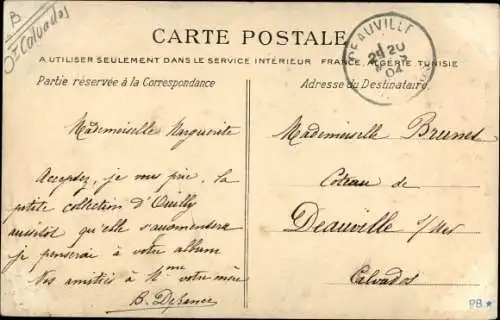 B
Calvados
CARTE POSTALE
A UTILISER SEULEMENT DANS LE SERVICE INTÉRIEUR FRANCE, ALGÉRIE, TUNISIE
Partie réservée à la Correspondance
Adresse du Destinataire
DEAUVILLE
20
04
Mademoiselle Marguerite
Acceptez, je vous prie, la
petite collection d'Ouilly
aussitôt qu'elle s'augmentera
je penserai à votre album
Nos amitiés à Mme votre mère
B. Defrance
Mademoiselle Brunet
Coteau de
Deauville s/Mer
Calvados
PB